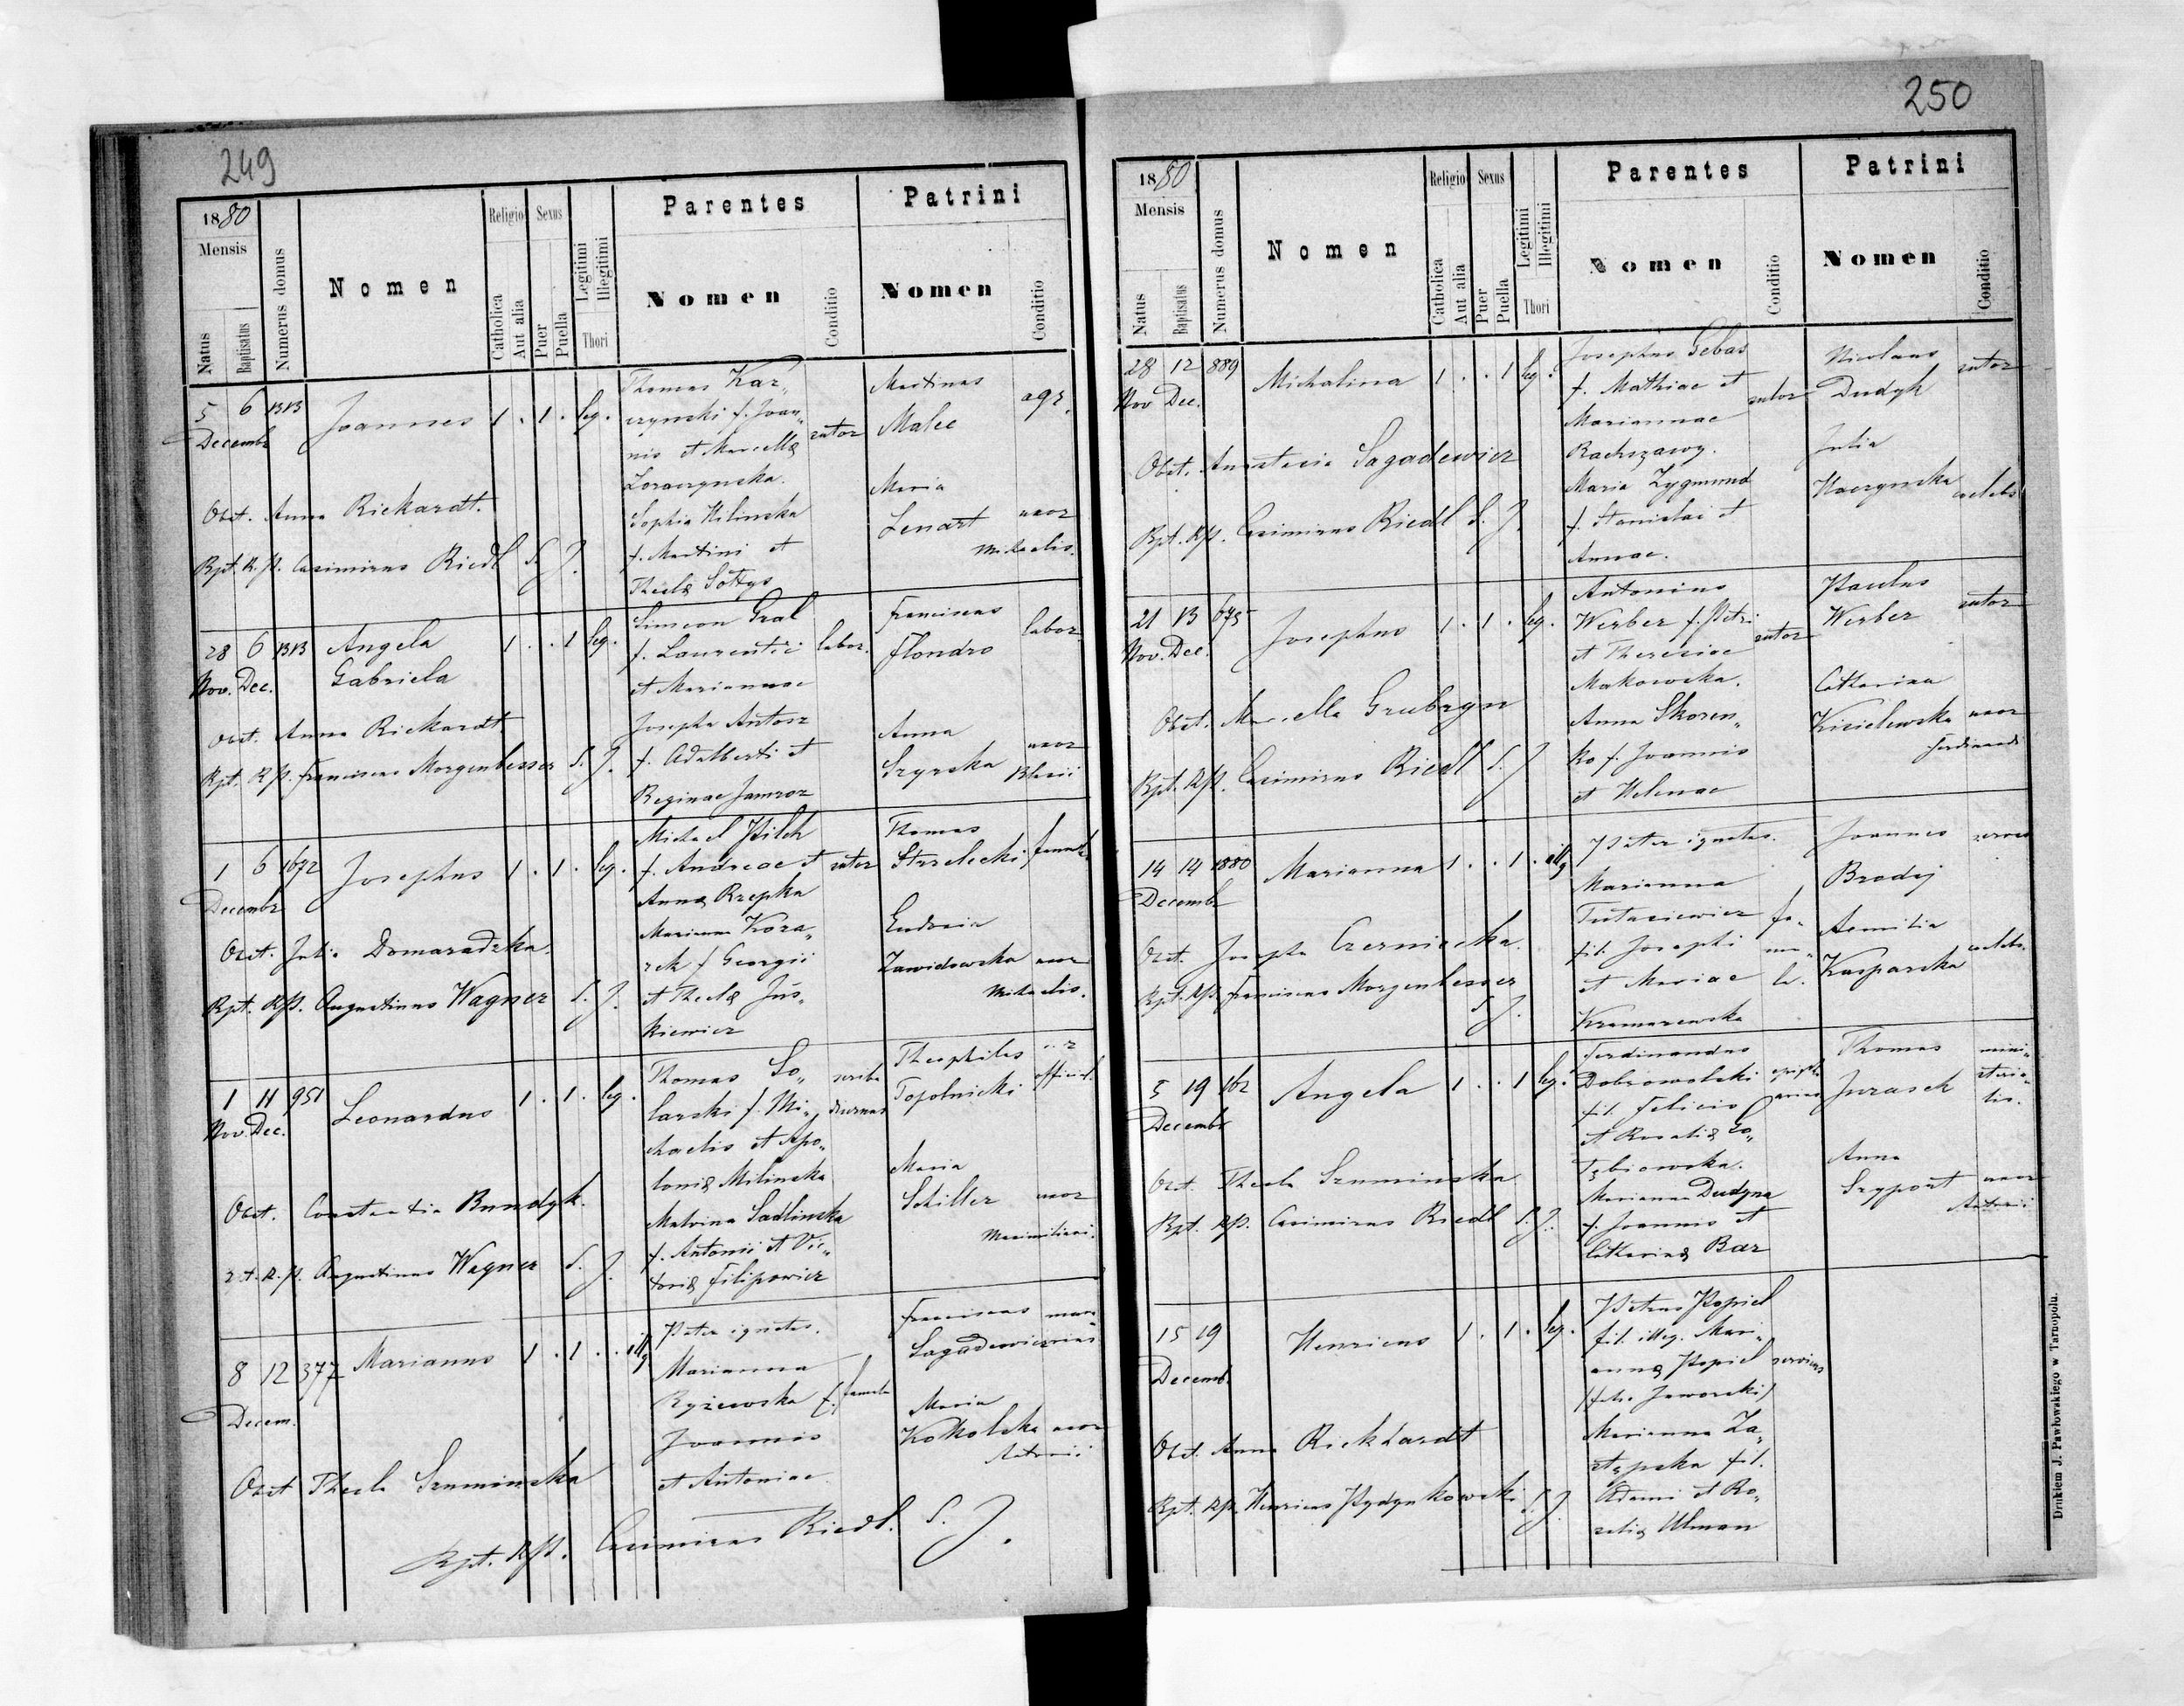 249
1880
Mensis
Natus
Baptisatus
Numerus domus
Nomen
Religio
Catholica
Aut alia
Sexus
Puer
Puella
Legitimi
Illegitimi
Thori
Parentes
Nomen
Conditio
Patrini
Nomen
Conditio
5 6 1313 Joannes 1 . 1 . leg.
Decembr
Thomas Kar„
czynski f. Joan„
nis et Marcellæ
sutor
Sophia Kilinska
f. Martini et
Theclæ Sołtys
Martinus agr.
Malec
Maria
Lenart uxor
Michaelis.
Obst. Anna Rickardt.
Bpt. R. P. Casimirus Riedl S. J.
28 6 1313 Angela 1 . . 1 leg.
Nov. Dec. Gabriela
Simeon Gral
f. Laurentii labor.
et Mariannae
Josepha Antosz
f. Adalberti et
Reginae Jamroz
Franciscus
Flondro labor.
Anna
Szyrska uxor
Blasii
Obst. Anna Rickardt
Bpt. R. P. Franciscus Morgenbesser S. J.
1 6 1672 Josephus 1 . 1 . leg.
Decembr
Michael Pilch
f. Andreae et sutor
Annæ Rzepka
Marianna Koza„
rek f. Georgii
et Theclæ Jus„
kiewicz
Thomas
Strzelecki
Eudoxia
Zawidowska uxor
Michaelis.
Obst. Julia Domaradzka.
Bpt. R. P. Augustinus Wagner S. J.
1 11 951 Leonardus 1 . 1 . leg.
Nov. Dec.
Thomas So„ scriba
larski f. Mi„ diurnus
chaelis et Apo„
loniæ Milinska
Malvina Sadlinska
f. Antonii et Vic„
toriæ Filipowicz
Theophilus
Topolnicki official.
Maria
Schiller uxor
Maximiliani.
Obst. Constantia Bundyk.
R. P. Augustinus Wagner S. J.
8 12 377 Marianus 1 . 1 . . illg
Decem.
Pater ignotus.
Marianna
Ryżewska f. famula
Joannis
et Antoniae
Franciscus
Sagadewicz
Maria
Kokolska uxor
Antonii
Obst Thecla Szuminska
Bpt. R. P. Casimirus Riedl. S. J.
250
1880
Mensis
Natus
Baptisatus
Numerus domus
Nomen
Religio
Catholica
Aut alia
Sexus
Puer
Puella
Legitimi
Illegitimi
Thori
Parentes
Nomen
Conditio
Patrini
Nomen
Conditio
28 12 889 Michalina 1 . . 1 leg.
Nov Dec.
Josephus Gebas
f. Mathiae et
Mariannae sutor
Maria Zygmund
f. Stanislai et
Annae.
Nicolaus sutor
Dudyk
Julia
Kaczynska caelebs
Obst. Anastasia Sagadewicz
Bpt. R. P. Casimirus Riedl S. J.
21 13 675 Josephus 1 . 1 . leg.
Nov. Dec.
Antonius
Werber f. Petri
et Theresiae sutor
Makowska.
Anna Skoren„
ko f. Joannis
et Helenae
Paulus
Werber sutor
Catharina
Kisielewska uxor
Ferdinandi
Obst. Marcella Grubzyn
Bpt. R. P. Casimirus Riedl S. J
14 14 1880 Marianna 1 . . 1 . illg
Decembr
Pater ignotus.
Marianna
Tutasiewicz fa-
fil. Josephi mu„
et Mariae la.
Kramarewska
Joannes servus
Brodij
Aemilia
Kasparska caelebs.
Obst. Josepha Czerniecka.
Bpt. R. P. Franciscus Morgenbesser
S. J.
5 19 162 Angela 1 . . 1 leg.
Decembr
Ferdinandus
Dobrowolski
fil. Felicis
et Rosaliæ Go„
łębiowska.
Marianna Dudyna
f. Joannis et
Catharinæ Bar
Thomas mini„
Jurasek steria„
lis.
Anna
Szypont uxor
Antonii
Obst. Thecla Szuminska
Bpt. R. P. Casimirus Riedl S. J.
15 19 Henricus 1 . 1 . leg.
Decemb.
Petrus Popiel
fil. illeg. Mari„
annæ Popiel serviens
(false Jaworski)
Marianna Za„
stępska fil.
Adami et Ro„
saliæ Ulman
Obst. Anna Rickhardt
Bpt. R. P. Henricus Pydynkowski S. J.
Drukiem J. Pawłowskiego w Tarnopolu.